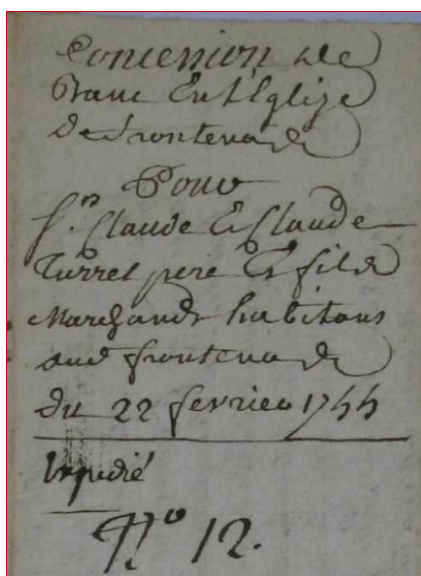 Concession De
Banc En L'Eglize
De frontenade
Pour
Sr. Claude & Claude
Turret pere & fils
Marchands habitans
aud frontenade
du 22 fevrier 1744
Expedié
No 12.